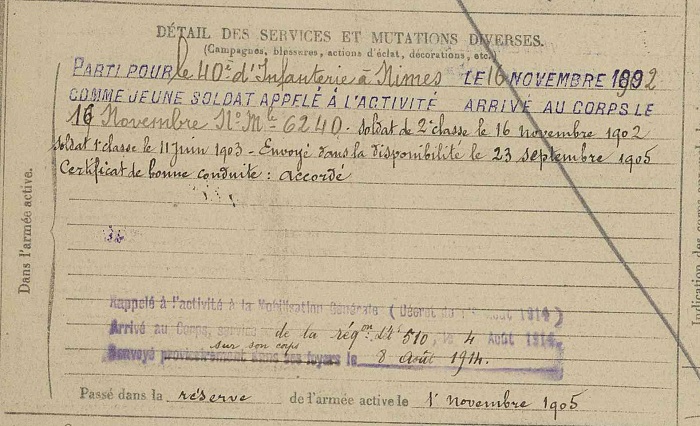 DÉTAIL DES SERVICES ET MUTATIONS DIVERSES.
(Campagnes, blessures, actions d'éclat, décorations, etc.)
PARTI POUR le 40e d'Infanterie à Nîmes LE 16 NOVEMBRE 1902
COMME JEUNE SOLDAT APPELÉ À L'ACTIVITÉ ARRIVÉ AU CORPS LE
16 Novembre No Mle 6240. Soldat de 2e classe le 16 novembre 1902
Soldat 1e classe le 11 Juin 1903 - Envoyé dans la disponibilité le 23 septembre 1905
Certificat de bonne conduite : accordé
Dans l'armée active.
Rappelé à l'activité à la Mobilisation Générale (Décret du 1er Août 1914)
Arrivé au Corps, de la rég on 510, le 4 Août 1914
sur son corps
Renvoyé provisoirement dans ses foyers le 8 Août 1914.
Passé dans la réserve de l'armée active le 1r Novembre 1905